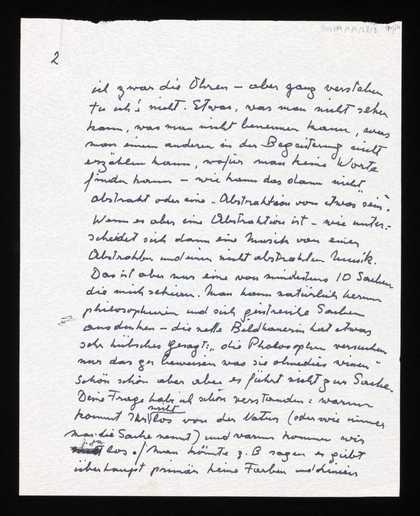 2
ich zwar die Ohren – aber ganz verstehen
tu ich's nicht. Etwas, was man nicht sehen
kann, was man nicht benennen kann, was
man einem anderen in der Begeisterung nicht
erzählen kann, wofür man keine Worte
finden kann – wie kann das dann nicht
abstrakt oder eine "Abstraktion von etwas" sein.
Wenn es aber eine Abstraktion ist – wie unter-
scheidet sich dann eine Musik von einer
Abstrakten und einer nicht abstrakten Musik.
Das ist aber nur eine von mindestens 10 Sachen
die mich Man kann natürlich herum
philosophieren und sich geistreiche Sachen
ausdenken – die nette Bildhauerin hat etwas
sehr hübsches gesagt: "die Philosophen versuchen
nur das zu beweisen was sie ohnedies wissen –
schön schön aber aber es führt nicht zur Sache.
Deine Frage hab ich schon verstanden: warum
kommt Ihr nicht los von der Natur (oder wie immer
man die Sache nennt) und warum kommen wir
los. / Man könnte z.B sagen es giebt
überhaupt primär keine Farben und Linien